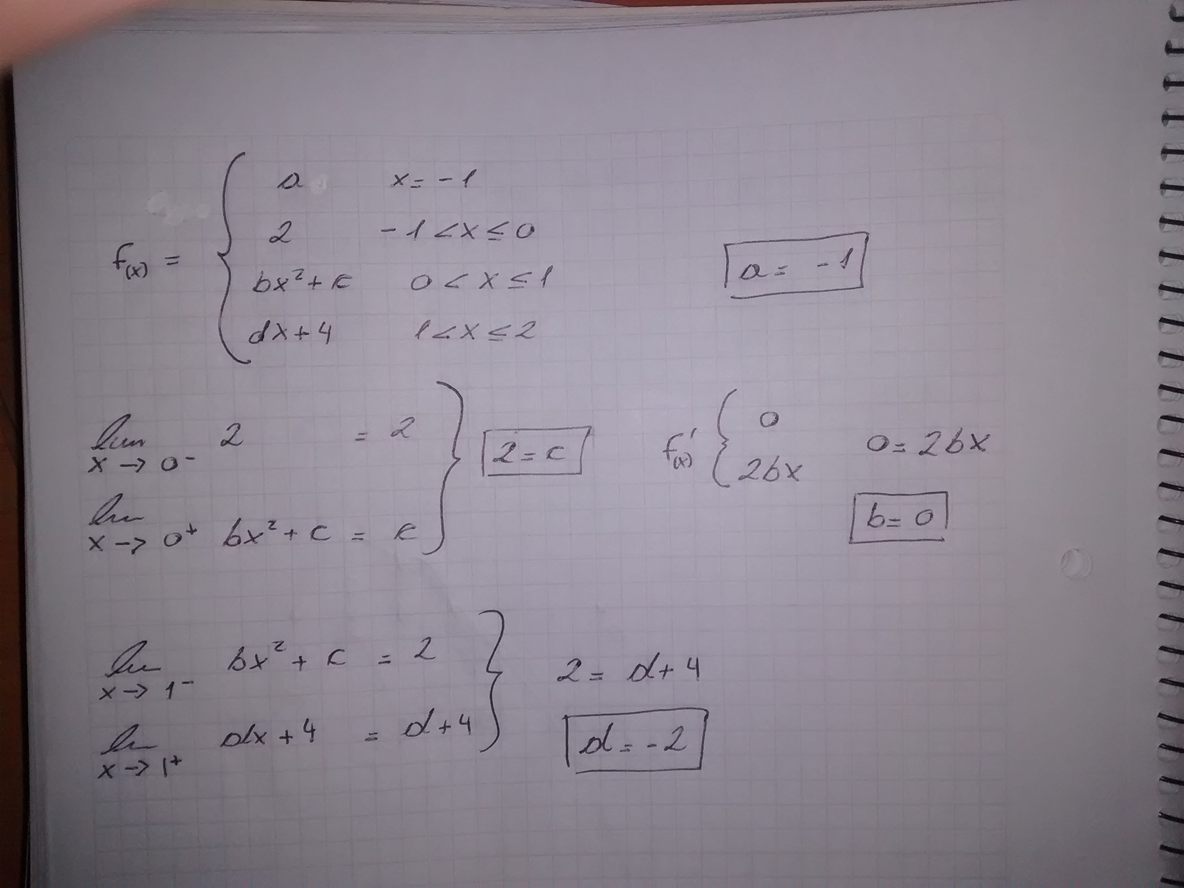 f(x) = { a x = -1
2 -1 < x ≤ 0
bx² + c 0 < x ≤ 1
dx + 4 1 < x ≤ 2
a = -1
lim x → 0⁻ 2 = 2
lim x → 0⁺ bx² + c = c
} 2 = c
f'(x) { 0
2bx
0 = 2bx
b = 0
lim x → 1⁻ bx² + c = 2
lim x → 1⁺ dx + 4 = d + 4
} 2 = d + 4
d = -2